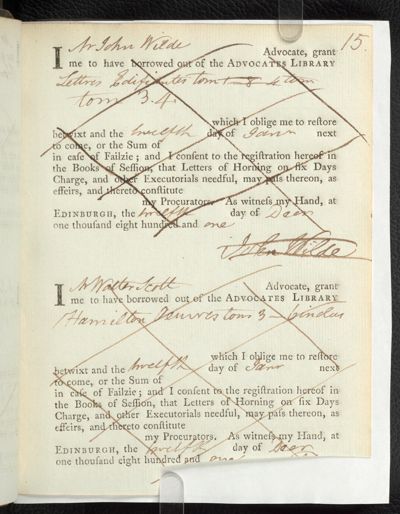 15.
I Mr John Wilde Advocate, grant
me to have borrowed out of the ADVOCATES LIBRARY
Lettres Edifiantes tom 1-8 4 tom
tom 3.4.
which I oblige me to reſtore
betwixt and the twelfth day of Janr next
to come, or the Sum of
in caſe of Failzie; and I conſent to the regiſtration hereof in
the Books of Seſſion, that Letters of Horning on ſix Days
Charge, and other Executorials needful, may paſs thereon, as
effeirs, and thereto conſtitute
my Procurators. As witneſs my Hand, at
EDINBURGH, the twelfth day of Decr
one thouſand eight hundred and one
John Wilde
I Mr Walter Scott Advocate, grant
me to have borrowed out of the ADVOCATES LIBRARY
Hamilton Oeuvres tom 3
which I oblige me to reſtore
betwixt and the twelfth day of Janr next
to come, or the Sum of
in caſe of Failzie; and I conſent to the regiſtration hereof in
the Books of Seſſion, that Letters of Horning on ſix Days
Charge, and other Executorials needful, may paſs thereon, as
effeirs, and thereto conſtitute
my Procurators. As witneſs my Hand, at
EDINBURGH, the twelfth day of Decr
one thouſand eight hundred and one